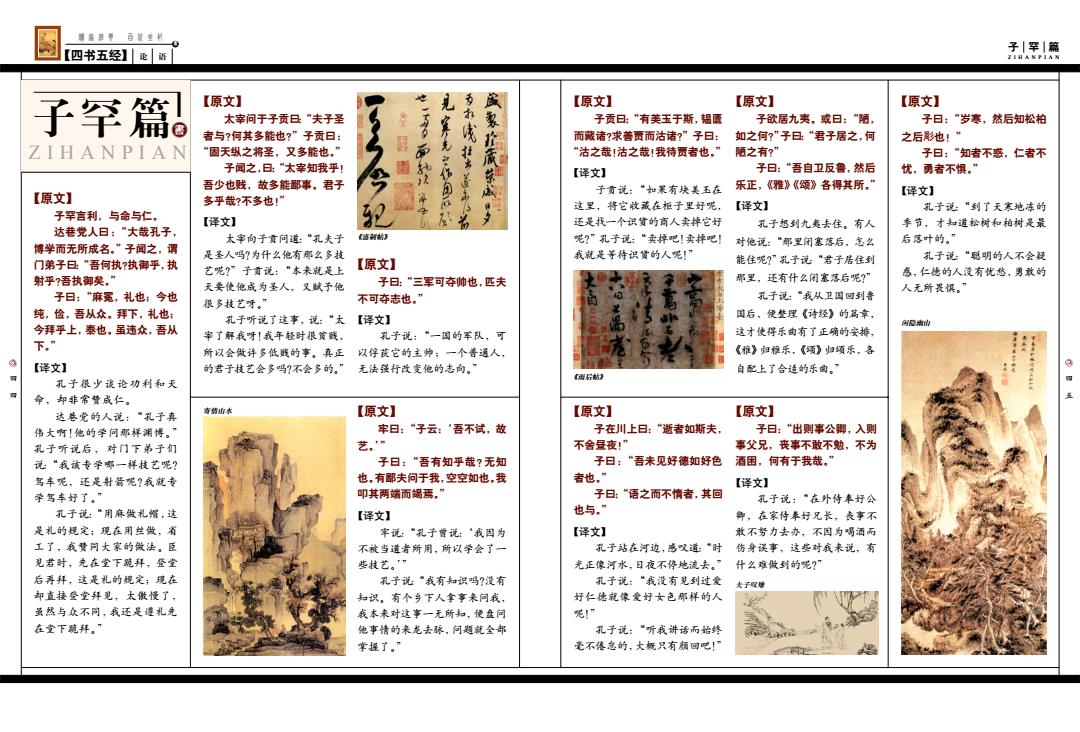 【四书五经】 论 语
子 罕 篇
ZIHANPIAN
子罕篇
ZIHANPIAN
【原文】
子罕言利，与命与仁。
达巷党人曰：“大哉孔子，
博学而无所成名。”子闻之，谓
门弟子曰：“吾何执?执御乎，执
射乎?吾执御矣。”
子曰：“麻冕，礼也；今也
纯，俭，吾从众。拜下，礼也；
今拜乎上，泰也。虽违众，吾从
下。”
【译文】
孔子很少谈论功利和天
命，却非常赞成仁。
达巷党的人说：“孔子真
伟大啊！他的学问那样渊博。”
孔子听说后，对门下弟子们
说：“我该专学哪一样技艺呢?
驾车呢，还是射箭呢?我就专
学驾车好了。”
孔子说：“用麻做礼帽，这
是礼的规定；现在用丝做，省
工了，我赞同大家的做法。臣
见君时，先在堂下跪拜，登堂
后再拜，这是礼的规定；现在
却直接登堂拜见，太傲慢了，
虽然与众不同，我还是遵礼先
在堂下跪拜。”
四
四
【原文】
太宰问于子贡曰：“夫子圣
者与?何其多能也?”子贡曰：
“固天纵之将圣，又多能也。”
子闻之，曰：“太宰知我乎！
吾少也贱，故多能鄙事。君子
多乎哉?不多也！”
【译文】
太宰向子贡问道：“孔夫子
是圣人吗?为什么他有那么多技
艺呢?”子贡说：“本来就是上
天要使他成为圣人，又赋予他
很多技艺呀。”
孔子听说了这事，说：“太
宰了解我呀！我年轻时很贫贱，
所以会做许多低贱的事。真正
的君子技艺会多吗?不会多的。”
寄情山水
《盛制帖》
【原文】
子曰：“三军可夺帅也，匹夫
不可夺志也。”
【译文】
孔子说：“一国的军队，可
以俘获它的主帅；一个普通人，
无法强行改变他的志向。”
【原文】
牢曰：“子云：‘吾不试，故
艺。’”
子曰：“吾有知乎哉？无知
也。有鄙夫问于我，空空如也。我
叩其两端而竭焉。”
【译文】
牢说：“孔子曾说：‘我因为
不被当道者所用，所以学会了一
些技艺。’”
孔子说：“我有知识吗?没有
知识。有个乡下人拿事来问我，
我本来对这事一无所知，便盘问
他事情的来龙去脉，问题就全部
掌握了。”
【原文】
子贡曰：“有美玉于斯，韫匮
而藏诸?求善贾而沽诸?”子曰：
“沽之哉！沽之哉！我待贾者也。”
【译文】
子贡说：“如果有块美玉在
这里，将它收藏在柜子里好呢，
还是找一个识货的商人卖掉它好
呢?”孔子说：“卖掉吧！卖掉吧！
我就是等待识货的人呢！”
《雨后帖》
【原文】
子在川上曰：“逝者如斯夫，
不舍昼夜！”
子曰：“吾未见好德如好色
者也。”
子曰：“语之而不惰者，其回
也与。”
【译文】
孔子站在河边，感叹道：“时
光正像河水，日夜不停地流去。”
孔子说：“我没有见到过爱
好仁德就像爱好女色那样的人
呢！”
孔子说：“听我讲话而始终
毫不倦怠的，大概只有颜回吧！”
【原文】
子欲居九夷。或曰：“陋，
如之何?”子曰：“君子居之，何
陋之有?”
子曰：“吾自卫反鲁，然后
乐正，《雅》《颂》各得其所。”
【译文】
孔子想到九夷去住。有人
对他说：“那里闭塞落后，怎么
能住呢?”孔子说：“君子居住到
那里，还有什么闭塞落后呢?”
孔子说：“我从卫国回到鲁
国后，便整理《诗经》的篇章，
这才使得乐曲有了正确的安排，
《雅》归雅乐，《颂》归颂乐，各
自配上了合适的乐曲。”
【原文】
子曰：“出则事公卿，入则
事父兄，丧事不敢不勉，不为
酒困，何有于我哉。”
【译文】
孔子说：“在外侍奉好公
卿，在家侍奉好兄长，丧事不
敢不努力去办，不因为喝酒而
伤身误事，这些对我来说，有
什么难做到的呢?”
夫子叹逝
【原文】
子曰：“岁寒，然后知松柏
之后彫也！”
子曰：“知者不惑，仁者不
忧，勇者不惧。”
【译文】
孔子说：“到了天寒地冻的
季节，才知道松树和柏树是最
后落叶的。”
孔子说：“聪明的人不会疑
惑，仁德的人没有忧愁，勇敢的
人无所畏惧。”
闲隐幽山
四
五